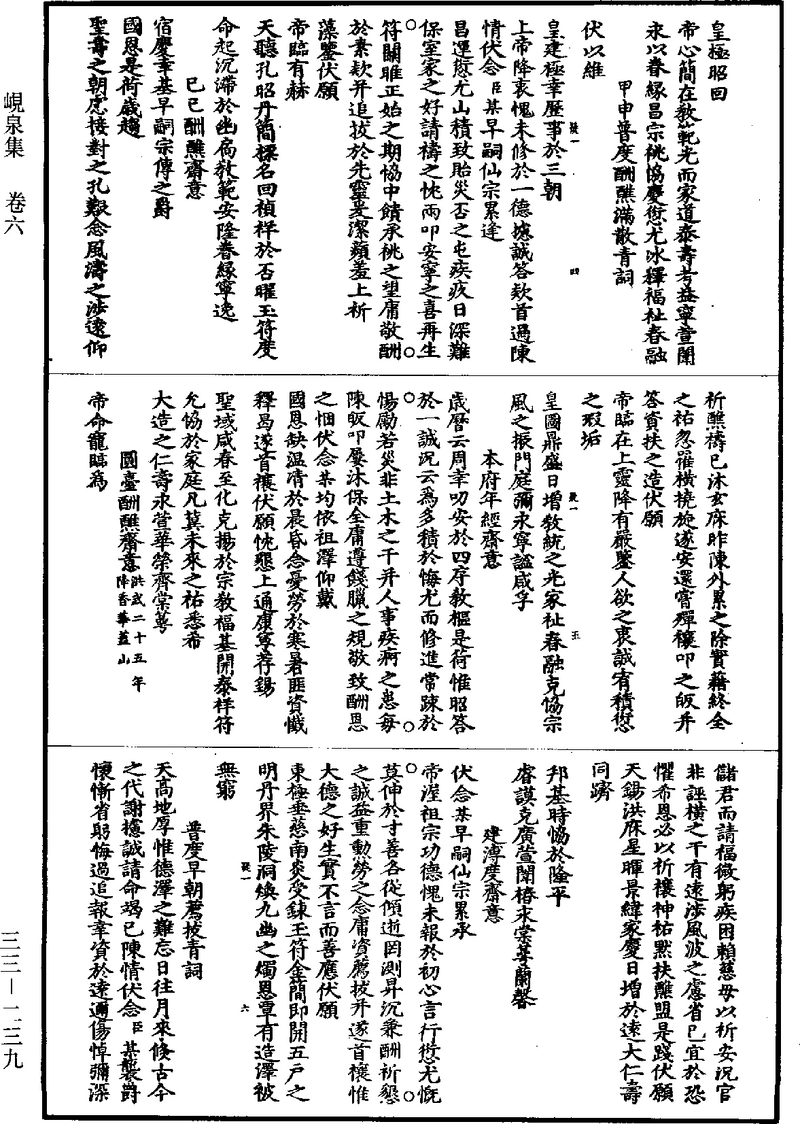 皇極昭回
帝心簡在教範光而家道泰壽考益寧萱闈
永以眷緣昌宗祧協慶愆尤冰釋福祉春融
甲申普度酬醮滿散青詞
伏以維
皇建極幸歷事於三朝
上帝降衷愧未修於一德摅誠答欵首過陳
情伏念臣某早嗣仙宗累逢
昌運愆尤山積致貽災否之屯疾疚日深難
保室家之好請禱之忱兩叩安寧之喜再生
符關雎正始之期協中饋承祧之望庸敬酬
於素欵并追拔於先靈爰潔蘋羞上祈
藻鑒伏願
帝臨有赫
天聽孔昭丹簡標名回禎祥於否曜玉符度
命起沉滯於幽扃教範安隆眷緣寧逸
己巳酬醮齋意
宿慶幸基早嗣宗傳之爵
國恩是荷歲趨
聖壽之朝慮接對之孔艱念風濤之涉遠仰
祈醮禱已沐玄庥昨陳外累之除實藉終全
之祐忽罹橫撓旋遂安還嘗殫穰叩之皈并
答資扶之造伏願
帝臨在上靈降有嚴鑒人欲之衷誠宥積愆
之瑕垢
皇圖鼎盛日增教統之光家祉春融克協宗
風之振門庭彌永寧謐咸孚
本府年經齋意
歲曆云周幸叨安於四序教樞是荷惟昭答
於一誠況云為多積於悔尤而修進常踈於
惕勵若災非土木之干并人事疾痾之患每
陳皈叩屢沐保全庸遵餞臘之規敬致酬恩
之悃伏念某均依祖澤仰戴
國恩缺溫凊於晨昏念憂勞於寒暑匪資懺
釋曷遂首禳伏願忱懇上通康尊荐錫
聖域咸春至化克揚於宗教福基開泰祥符
允協於家庭凡冀未來之祐悉希
大造之仁壽永萱華榮齊棠萼
圜臺酬醮齋意洪武二十五年降香華蓋山
帝命寵臨為
儲君而請福微躬疾困賴慈母以祈安況官
非誣橫之干有遠涉風波之慮省已宜於恐
懼希恩必以祈禳神祐默扶醮盟是踐伏願
天錫洪庥星暉景緯家慶日增於遠大仁壽
同躋
邦基時協於隆平
睿謨克廣萱闈椿永棠萼蘭馨
建溥度齋意
伏念某早嗣仙宗累承
帝渥祖宗功德愧未報於初心言行愆尤慨
莫伸於寸善各從傾逝罔測昇沉兼酬祈懇
之誠益重動勞之念庸資薦拔并遂首禳惟
大德之好生實不言而善應伏願
東極垂慈南炎受鍊玉符金簡即開五戶之
明丹界朱陵洞煥九幽之燭恩覃有造澤被
無窮
普度早朝薦拔青詞
天高地厚惟德澤之難忘日往月來倏古今
之代謝摅誠請命竭已陳情伏念臣某襲爵
懷慚省躬悔過追報幸資於遠邇傷悼彌深
峴泉集
卷六
三三-二三九
疑一
四
疑一
五
疑一
六